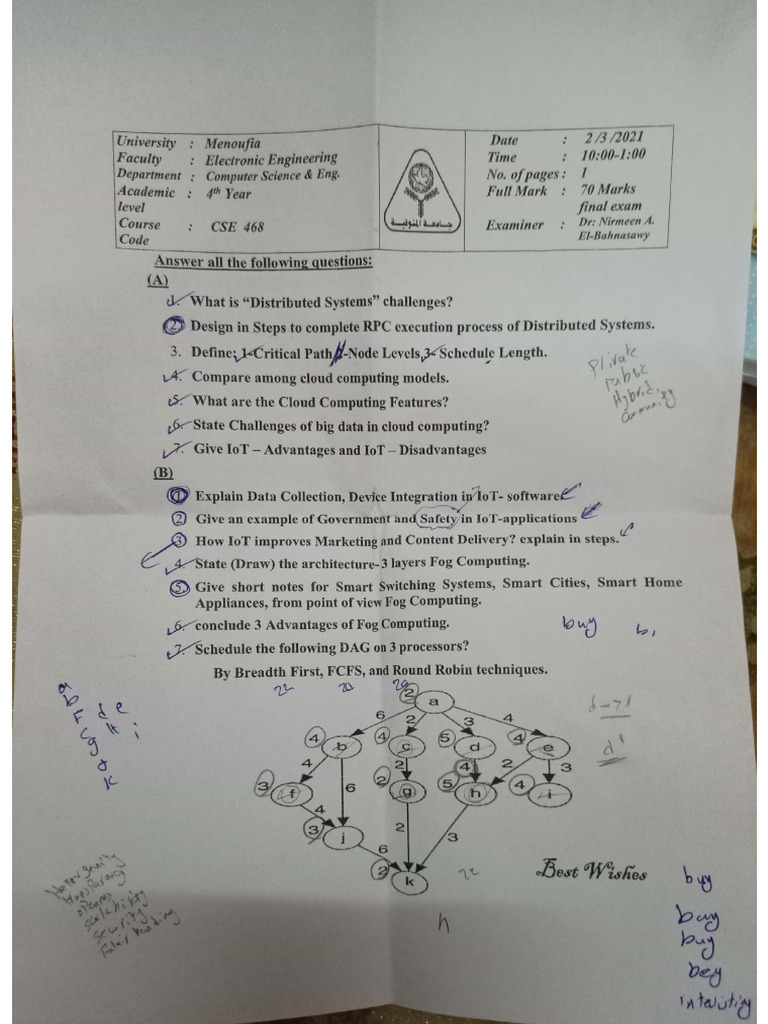 University : Menoufia
Faculty : Electronic Engineering
Department : Computer Science & Eng.
Academic : 4th Year
level
Course : CSE 468
Code
جامعة المنوفية
Date : 2 /3 /2021
Time : 10:00-1:00
No. of pages : 1
Full Mark : 70 Marks
final exam
Examiner : Dr: Nirmeen A.
El-Bahnasawy
Answer all the following questions:
(A)
1. What is "Distributed Systems" challenges?
2. Design in Steps to complete RPC execution process of Distributed Systems.
3. Define; 1-Critical Path, 2-Node Levels, 3- Schedule Length.
4. Compare among cloud computing models.
5. What are the Cloud Computing Features?
6. State Challenges of big data in cloud computing?
7. Give IoT – Advantages and IoT – Disadvantages
Private
Public
Hybrid
Community
(B)
1 Explain Data Collection, Device Integration in IoT- software
2 Give an example of Government and Safety in IoT-applications
3 How IoT improves Marketing and Content Delivery? explain in steps.
4. State (Draw) the architecture-3 layers Fog Computing.
5. Give short notes for Smart Switching Systems, Smart Cities, Smart Home
Appliances, from point of view Fog Computing.
6. conclude 3 Advantages of Fog Computing.
7. Schedule the following DAG on 3 processors?
By Breadth First, FCFS, and Round Robin techniques.
buy
22 20 20
2 a
6 2 3 4
4 b 4 c 5 d 4 e
4 6 2 4 2 3
3 f 2 g 5 h 4 i
4
3 j 2 3
6
2 k
22
Best Wishes
h
openness
scalability
security
buy
buy
buy